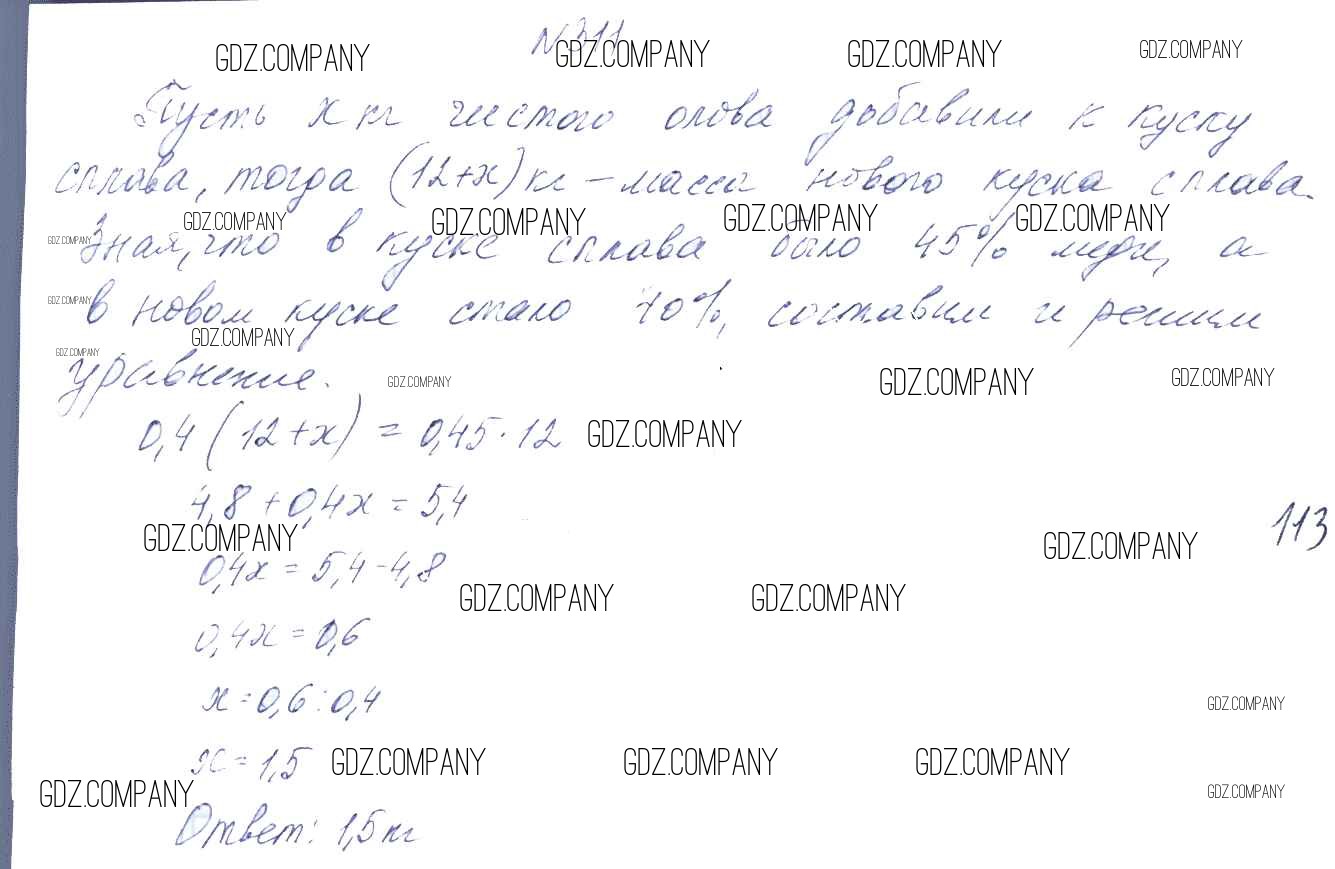 №311
GDZ.COMPANY GDZ.COMPANY GDZ.COMPANY GDZ.COMPANY
Пусть x кг чистого олова добавили к куску
сплава, тогда (12+x) кг – масса нового куска сплава.
GDZ.COMPANY GDZ.COMPANY GDZ.COMPANY GDZ.COMPANY
GDZ.COMPANY
Зная, что в куске сплава было 45% меди, а
GDZ.COMPANY
в новом куске стало 40%, составим и решим
GDZ.COMPANY
GDZ.COMPANY
уравнение.
GDZ.COMPANY GDZ.COMPANY GDZ.COMPANY
0,4 (12+x) = 0,45·12
GDZ.COMPANY
4,8 + 0,4x = 5,4
113
GDZ.COMPANY GDZ.COMPANY
0,4x = 5,4-4,8
GDZ.COMPANY GDZ.COMPANY
0,4x = 0,6
x = 0,6:0,4
GDZ.COMPANY
x = 1,5
GDZ.COMPANY GDZ.COMPANY GDZ.COMPANY
GDZ.COMPANY GDZ.COMPANY
Ответ: 1,5 кг